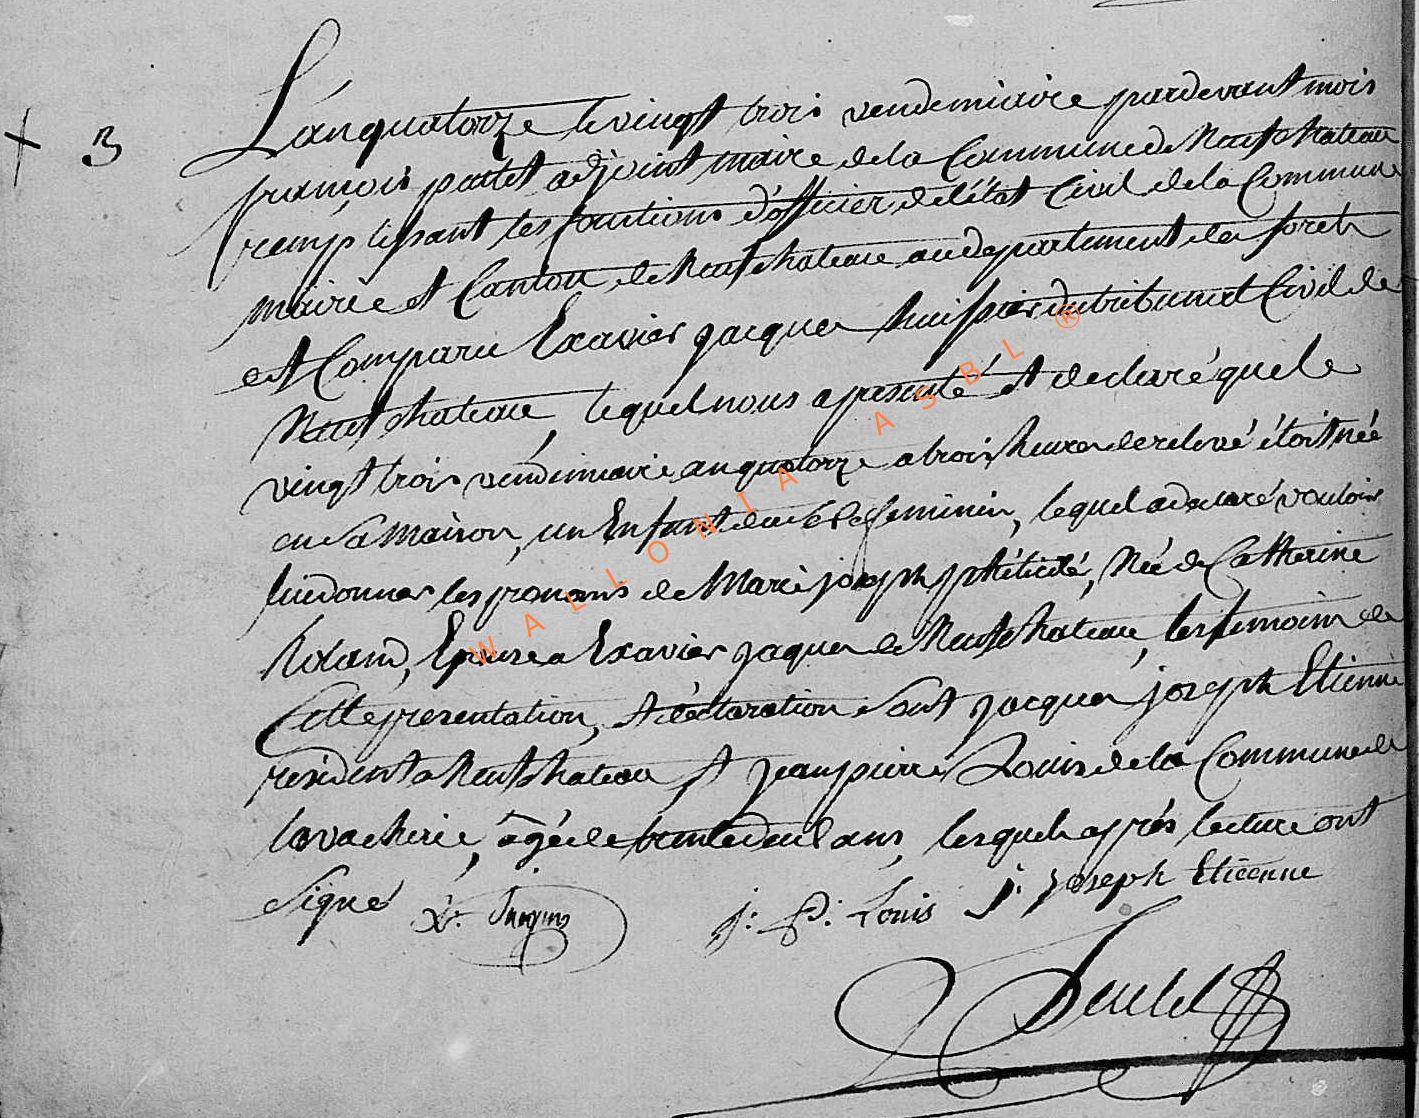 3 L'an quatorze le vingt trois vendemiaire pardevant mois
françois poulet adjoint maire de la Commune de Neufchateau
remplissant les fonctions d'officier de l'état Civil de la Commune
mairie et Canton de Neufchateau au departement des forêts
est Comparu Exavier jacques huissier du tribunal Civil de
Neufchateau, lequel nous a presenté et declaré que le
vingt trois vendemiaire an quatorze a trois heures de relevé étoit née
en sa maison, un Enfant du sexe feminin, lequel a declaré vouloir
lui donner les prenoms de Marie joseph phéticité, Née de Catherine
Roland, Epouse a Exavier jaques de Neufchateau, les temoins de
Cette presentation, et déclaration sont jacques joseph Etienne
resident a Neufchateau et jean pierre Louis de la Commune de
lavacherie, agé de trente deux ans, lesquels après lecture ont
signé X. Jacques j: P: Louis j: joseph Etienne
Poulet
WALLONIA ASBL ®